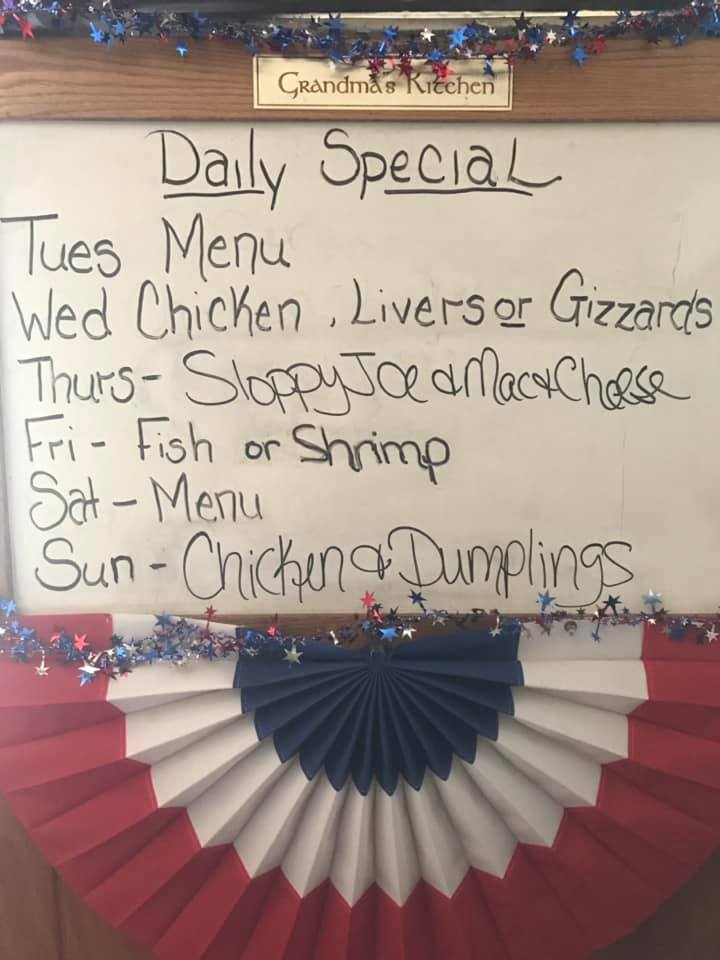 Grandma's Kitchen
Daily Special
Tues Menu
Wed Chicken, Livers or Gizzards
Thurs- Sloppy Joe & Mac & Cheese
Fri - Fish or Shrimp
Sat - Menu
Sun - Chicken & Dumplings